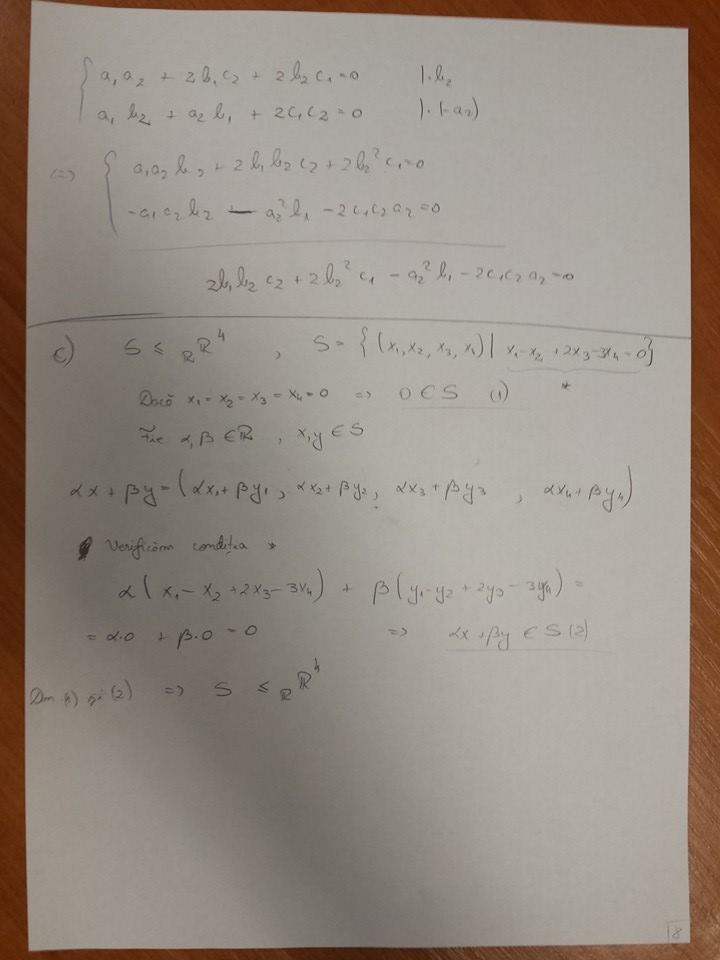 a₁a₂ + 2b₁c₂ + 2b₂c₁ = 0 | · b₂
a₁b₂ + a₂b₁ + 2c₁c₂ = 0 | · (-a₂)
<=> a₁a₂b₂ + 2b₁b₂c₂ + 2b₂²c₁ = 0
-a₁a₂b₂ - a₂²b₁ - 2c₁c₂a₂ = 0
2b₁b₂c₂ + 2b₂²c₁ - a₂²b₁ - 2c₁c₂a₂ = 0
c) S ≤ ᵣℝ⁴ , S = {(x₁, x₂, x₃, x₄) | x₁ - x₂ + 2x₃ - 3x₄ = 0}
*
Dacă x₁ = x₂ = x₃ = x₄ = 0 => 0 ∈ S (1)
Fie α, β ∈ ℝ , x, y ∈ S
αx + βy = (αx₁ + βy₁, αx₂ + βy₂, αx₃ + βy₃, αx₄ + βy₄)
Verificăm condiția *
α(x₁ - x₂ + 2x₃ - 3x₄) + β(y₁ - y₂ + 2y₃ - 3y₄) =
= α·0 + β·0 = 0 => αx + βy ∈ S (2)
Din (1) și (2) => S ≤ ᵣℝ⁴
8